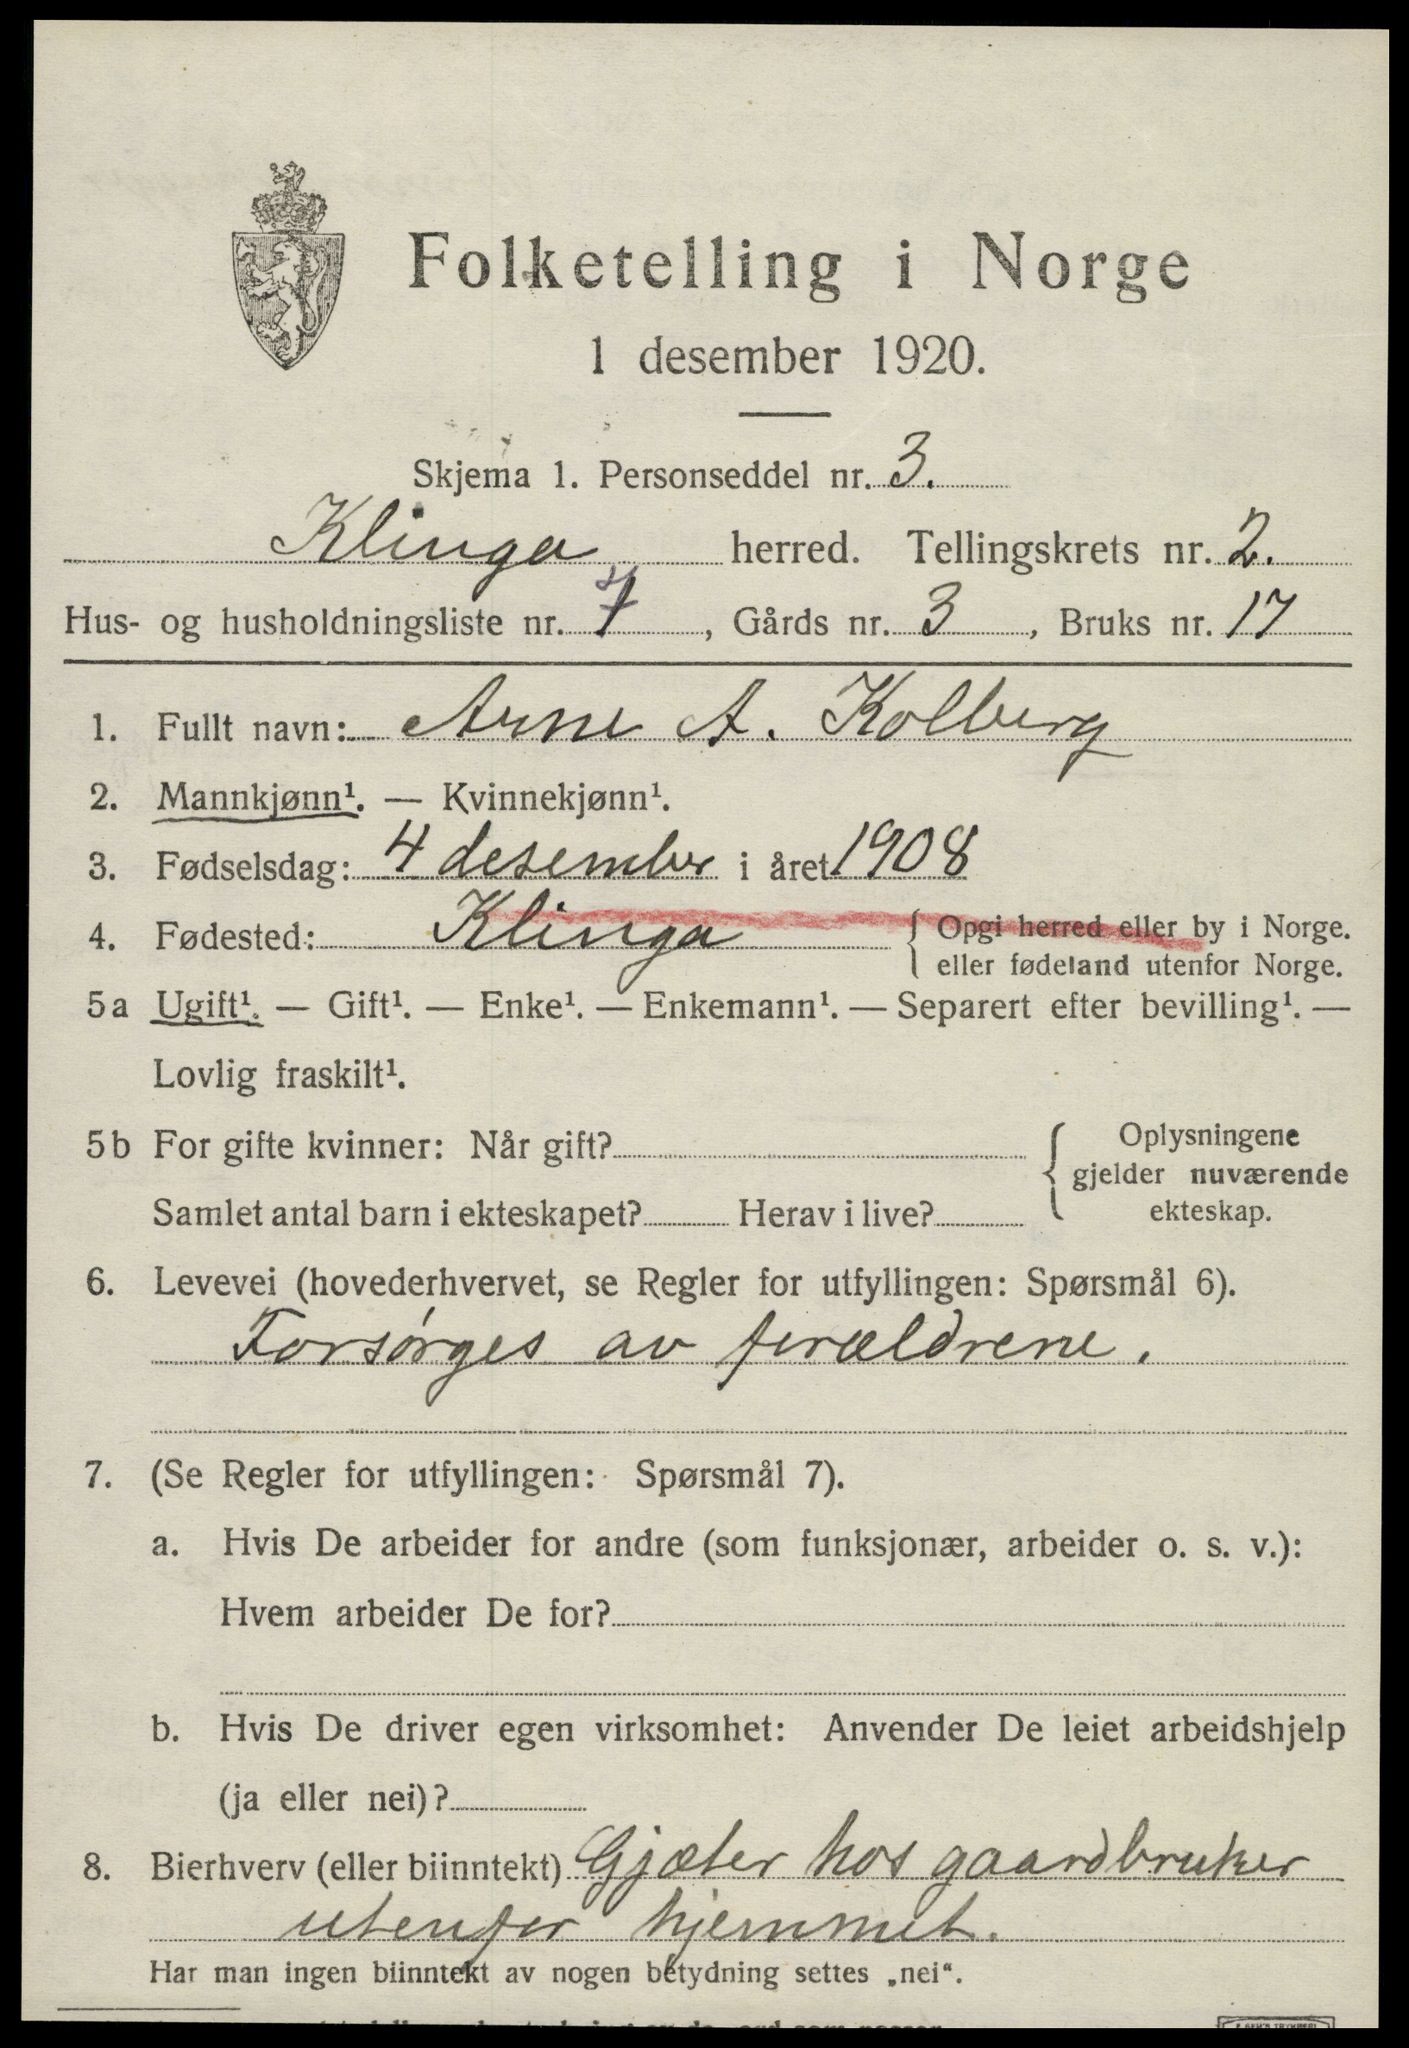 Folketelling i Norge
1 desember 1920.
Skjema 1. Personseddel nr. 3.
Klinga herred. Tellingskrets nr. 2.
Hus- og husholdningsliste nr. 7, Gårds nr. 3, Bruks nr. 17
1. Fullt navn: Arne A. Kolberg
2. Mannkjønn¹. — Kvinnekjønn¹.
3. Fødselsdag: 4 desember i året 1908
4. Fødested: Klinga { Opgi herred eller by i Norge.
eller fødeland utenfor Norge.
5a Ugift¹. — Gift¹. — Enke¹. — Enkemann¹. — Separert efter bevilling¹. —
Lovlig fraskilt¹.
5b For gifte kvinner: Når gift? { Oplysningene
gjelder nuværende
Samlet antal barn i ekteskapet? Herav i live? ekteskap.
6. Levevei (hovederhvervet, se Regler for utfyllingen: Spørsmål 6).
Forsørges av forældrene.
7. (Se Regler for utfyllingen: Spørsmål 7).
a. Hvis De arbeider for andre (som funksjonær, arbeider o. s. v.):
Hvem arbeider De for?
b. Hvis De driver egen virksomhet: Anvender De leiet arbeidshjelp
(ja eller nei)?
8. Bierhverv (eller biinntekt) Gjæter hos gaardbruker
utenfor hjemmet.
Har man ingen biinntekt av nogen betydning settes „nei“.